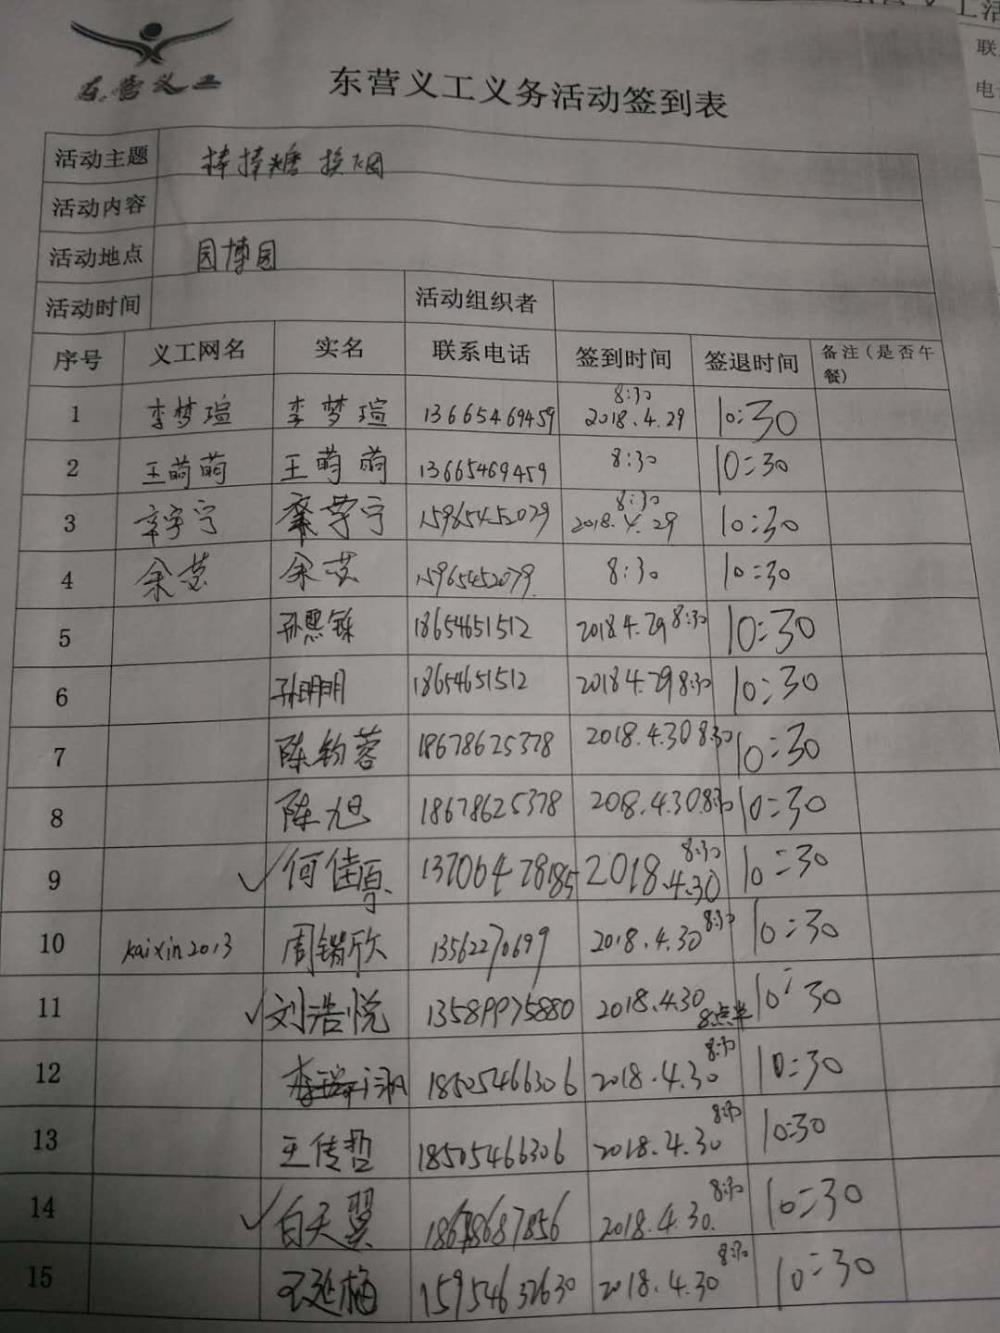 东营义工
东营义工义务活动签到表
活动主题 棒棒糖换烟
活动内容
活动地点 园博园
活动时间 活动组织者
序号 义工网名 实名 联系电话 签到时间 签退时间 备注（是否午餐）
1 李梦瑄 李梦瑄 13665469459 8:30 2018.4.29 10:30
2 王萌萌 王萌萌 13665469459 8:30 10:30
3 15965452079 8:30 2018.4.29 10:30
4 余苾 余苾 15965452079 8:30 10:30
5 孙熙铄 18654651512 2018 4.29 8:30 10:30
6 孙明明 18654651512 2018 4.29 8:30 10:30
7 陈钧蓉 18678625378 2018.4.30 8:30 10:30
8 陈旭 18678625378 2018.4.30 8:30 10:30
9 ✓何佳 13706478185 2018.4.30 8:30 10:30
10 kaixin2013 周锴欣 13562270699 2018.4.30 8:30 10:30
11 ✓刘浩悦 13589975880 2018.4.30 8点半 10:30
12 18505466306 2018.4.30 8:30 10:30
13 王传哲 18505466306 2018.4.30 8:30 10:30
14 ✓白天翼 18678687856 2018.4.30. 8:30 10:30
15 王延梅 15954632630 2018.4.30 8:30 10:30